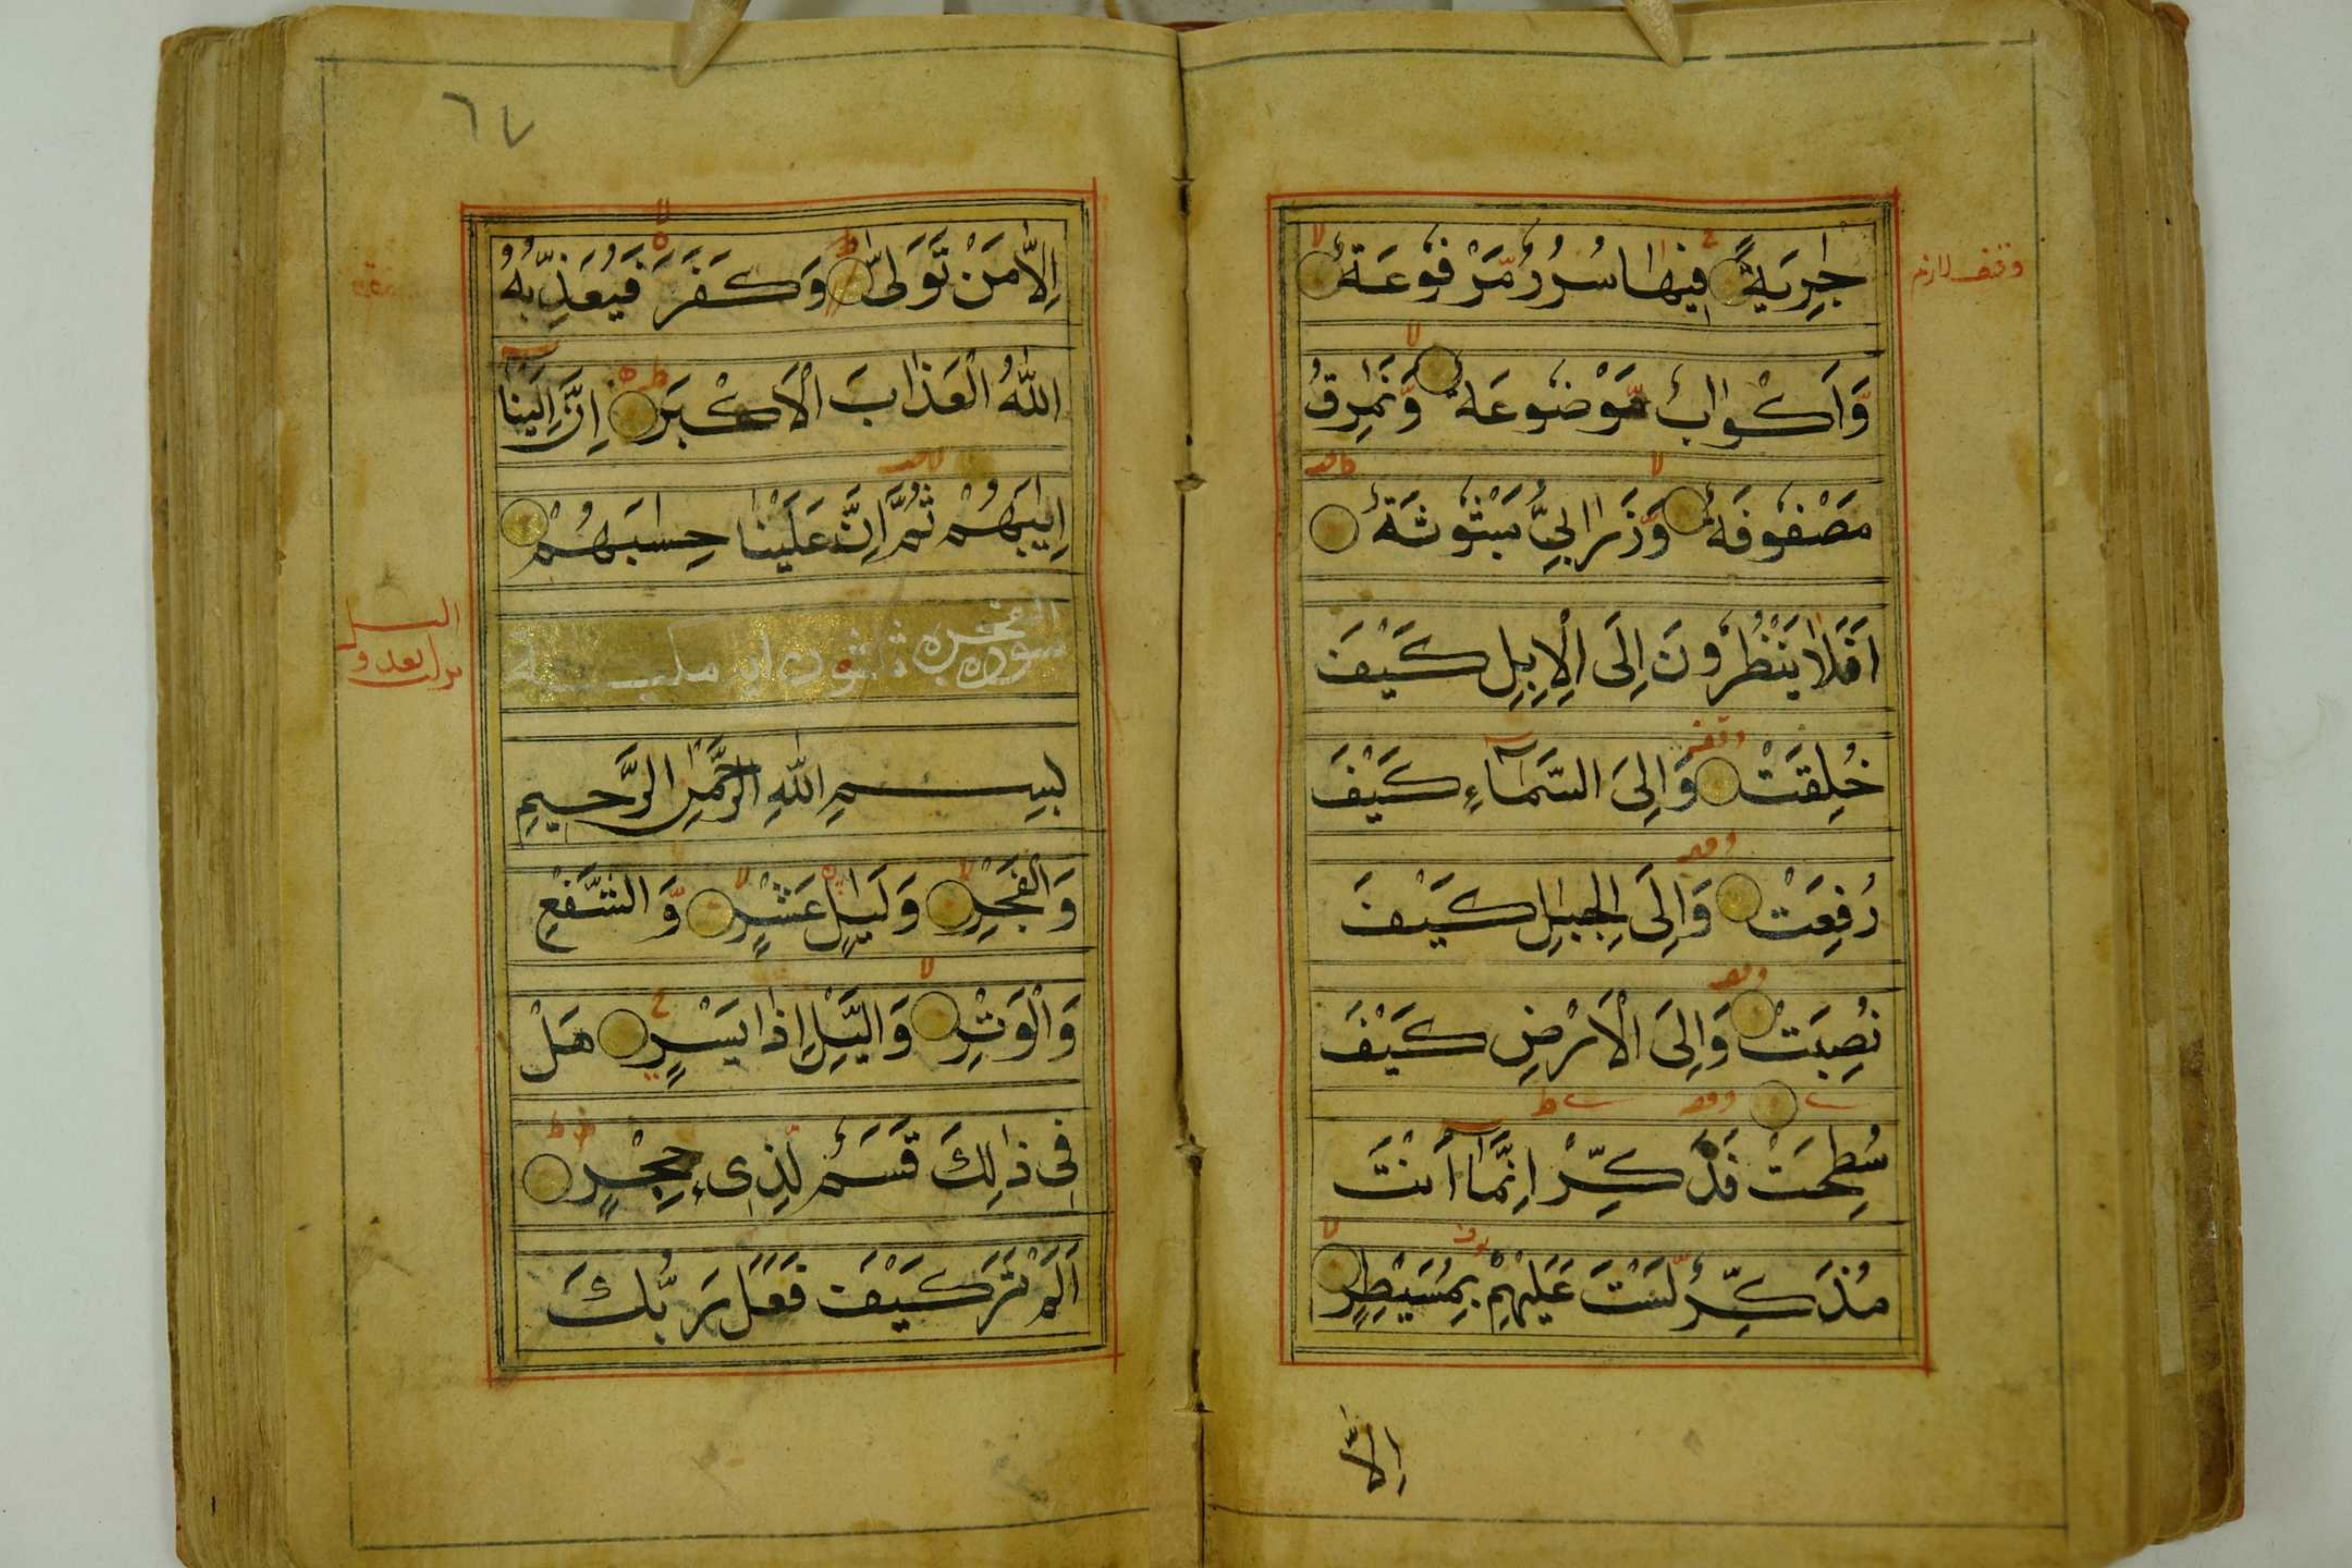 جٰرِيَةٌ فِيهَا سُرُرٌ مَّرْفُوعَةٌ
وقف لازم
وَّاَكْوَابٌ مَّوْضُوعَةٌ وَّنَمٰرِقُ
مَصْفُوفَةٌ وَّزَرَابِيُّ مَبْثُوثَةٌ
اَفَلَا يَنْظُرُونَ اِلَى الْاِبِلِ كَيْفَ
خُلِقَتْ وَاِلَى السَّمَآءِ كَيْفَ
رُفِعَتْ وَاِلَى الْجِبٰلِ كَيْفَ
نُصِبَتْ وَاِلَى الْاَرْضِ كَيْفَ
سُطِحَتْ فَذَكِّرْ اِنَّمَآ اَنْتَ
مُذَكِّرٌ لَّسْتَ عَلَيْهِمْ بِمُسَيْطِرٍ
اِلَّا
٦٧
اِلَّا مَنْ تَوَلّٰى وَكَفَرَ فَيُعَذِّبُهُ
اللّٰهُ الْعَذَابَ الْاَكْبَرَ اِنَّ اِلَيْنَآ
اِيَابَهُمْ ثُمَّ اِنَّ عَلَيْنَا حِسٰبَهُمْ
سورة الفجر
بِسْمِ اللّٰهِ الرَّحْمٰنِ الرَّحِيمِ
وَالْفَجْرِ وَلَيَالٍ عَشْرٍ وَّالشَّفْعِ
وَالْوَتْرِ وَالَّيْلِ اِذَا يَسْرِ هَلْ
فِى ذٰلِكَ قَسَمٌ لِّذِى حِجْرٍ
اَلَمْ تَرَ كَيْفَ فَعَلَ رَبُّكَ